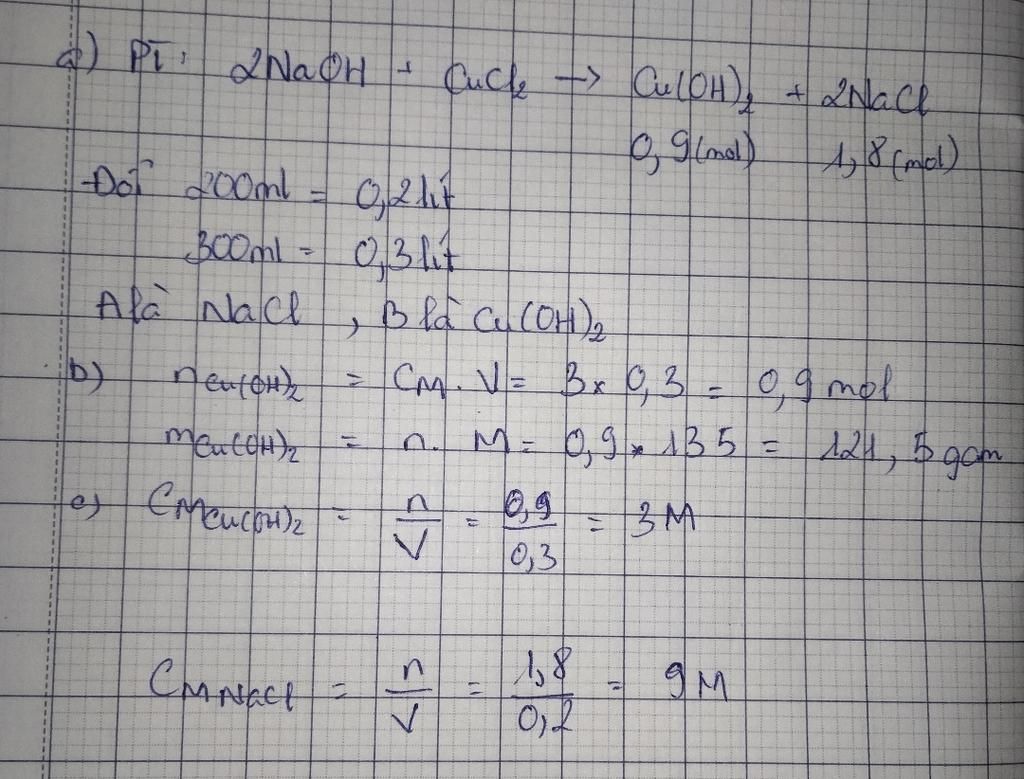 a) PT: 2NaOH + CuCl₂ → Cu(OH)₂ + 2NaCl
0,9(mol) 1,8(mol)
-Đổi 200ml = 0,2 lít
300ml = 0,3 lít
A là NaCl, B là Cu(OH)₂
b) nCu(OH)₂ = CM. V = 3x 0,3 = 0,9 mol
mCu(OH)₂ = n. M = 0,9 x 135 = 121,5 gam
c) CMCu(OH)₂ = n/V = 0,9/0,3 = 3M
CMNaCl = n/V = 1,8/0,2 = 9M